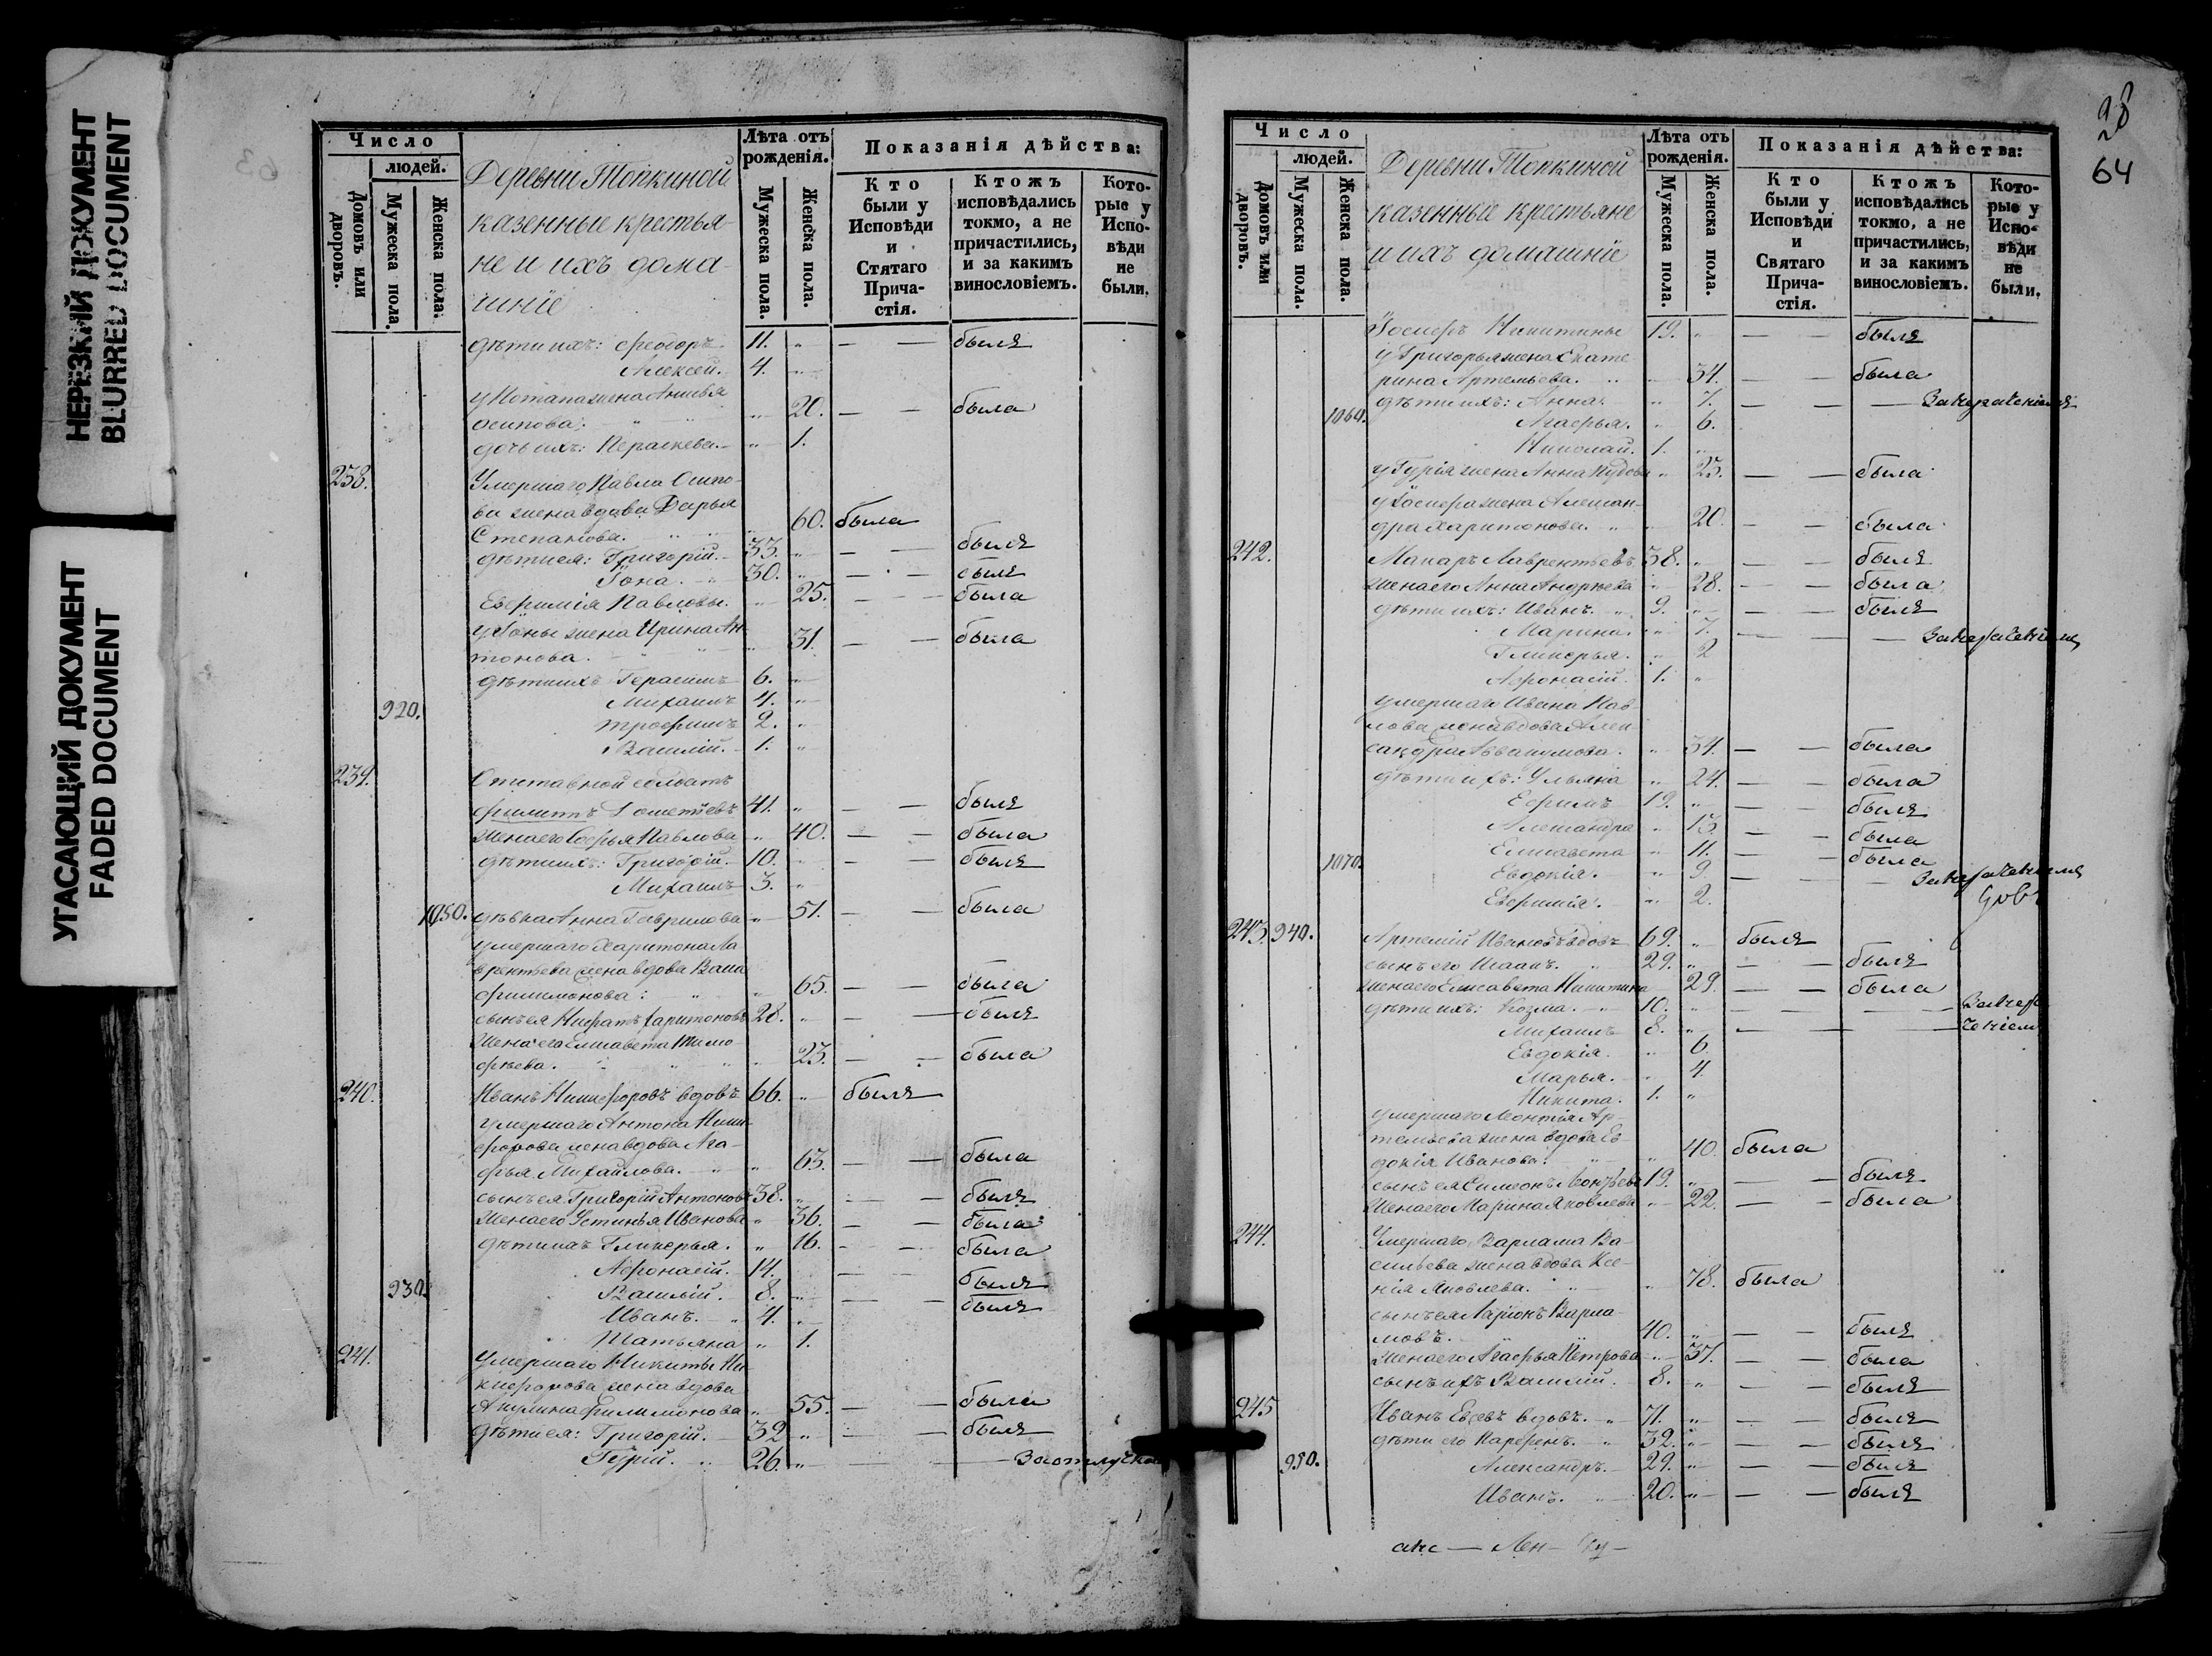 НЕРЕЗКИЙ ДОКУМЕНТ
BLURRED DOCUMENT
УГАСАЮЩИЙ ДОКУМЕНТ
FADED DOCUMENT
Число
людей.
Домовъ или дворовъ.
Мужеска пола.
Женска пола.
Деревни Топкиной
казенные крестья-
не и ихъ дома-
шніе
Лѣта отъ рожденія.
Мужеска пола.
Женска пола.
Показанія дѣйства:
Кто были у Исповѣди и Стятаго Прича-стія.
Ктожъ исповѣдались токмо, а не причастились, и за какимъ винословіемъ.
Кото-рые у Испо-вѣди не были.
дѣти ихъ: Ѳеодоръ 11. „ — — былъ
Алексѣй. 4. „
у Потапа жена
осипова. „ 20. — — была
дочь ихъ: Параскева. „ 1.
238. Умершаго Павла Осипо-
ва жена вдова Дарья
Степанова. „ 60. была
дѣти ея: Григорій. 33. „ — — былъ
Іона. 30. „ — — былъ
Евфимія Павловы. „ 25. — — была
у Іоны жена Ирина Ан-
тонова. „ 31. — — была
дѣти ихъ Герасимъ 6. „
920. Михаилъ 4. „
Трофимъ 2. „
Василій. 1. „
239. Отставной солдатъ
Филиппъ 41. „ — — былъ
жена его Софья Павлова „ 40. — — была
дѣти ихъ: Григорій. 10. „ — — былъ
Михаилъ 3. „
1050. дѣвка Анна Гаврилова „ 51. — — была
умершаго Харитона Ла
врентьева жена вдова
Филимонова: „ 65. — — была
сынъ ея Харитоновъ 28. „ — — былъ
жена его Елисавета Тимо
фѣева. „ 23. — — была
240. Иванъ Никифоровъ вдовъ 66. „ былъ
умершаго Антона Ники
форова жена вдова Ага-
фья Михайлова. „ 63. — — была
сынъ ея Григорій Антоновъ 38. „ — — былъ
жена его Устинья Иванова „ 36. — — была
дѣти ихъ Гликерья. „ 16. — — была
Афонасій. 14. — — былъ
930. Василій. 8. „ — — былъ
Иванъ. 4. „
Татьяна „ 1.
241. Умершаго Никиты Ни-
кифорова жена вдова
Акулина Филимонова „ 55. — — была
дѣти ея: Григорій. 32 „ — — былъ
Гурій. 26. „ — — За отлучкою
28
64
Число
людей.
Домовъ или дворовъ.
Мужеска пола.
Женска пола.
Деревни Топкиной
казенные крестьяне
и ихъ домашніе
Лѣта отъ рожденія.
Мужеска пола.
Женска пола.
Показанія дѣйства:
Кто были у Исповѣди и Святаго Прича-стія.
Ктожъ исповѣдались токмо, а не причастились, и за какимъ винословіемъ.
Кото-рые у Испо-вѣди не были.
Іосифъ Никитины 19. „ — — былъ
у Григорья жена Екате
рина Артемьева. „ 34. — — была
дѣти ихъ: Анна. „ 7. — —
1060. Агафья. „ 6.
Николай. 1. „
у Гурія жена Анна „ 25. — — была
у Іосифа жена Алексан-
дра Харитонова. „ 20. — — была
242. Макаръ Лаврентьевъ 38. „ — — былъ
жена его Анна Андреева „ 28. — — была
дѣти ихъ: Иванъ. 9. „ — — былъ
Марина. „ 7. — —
Гликерья. „ 2
Афонасій. 1. „
умершаго Ивана Пав-
лова жена вдова Алек
сандра Аввакумова. „ 34. — — была
дѣти ихъ: Ульяна „ 24. — — была
Ефимъ 19. „ — — былъ
Александра „ 15. — — была
Елисавета „ 11. — — была
1070. Евдокія. „ 9. — —
Евфимія. „ 2.
243. 940. Артемій Ивановъ вдовъ 69. „ былъ
сынъ его Исаакъ. 29. „ — — былъ
жена его Елисавета Никитина 29. — — была
дѣти ихъ: Козма. 10. „ — —
Михаилъ 8. „ — —
Евдокія. „ 6.
Марья. „ 4.
Никита. 1. „
умершаго Леонтія Ар-
темьева жена вдова Ев-
докія Иванова. „ 40. была
сынъ ея Симеонъ Леонтьевъ 19. „ — — былъ
жена его Марина Яковлева „ 22. — — была
244. Умершаго Варлама Ва-
сильева жена вдова Ксе-
нія Яковлева. „ 78. была
сынъ ея Ларіонъ Варла-
мовъ. 40. „ — — былъ
жена его Агафья Петрова „ 37. — — была
сынъ ихъ Василій. 8. „ — — былъ
245 Иванъ вдовъ. 71. „ — — былъ
дѣти его Карфенъ. 32. „ — — былъ
950. Александръ. 29. „ — — былъ
Иванъ. 20. „ — — былъ